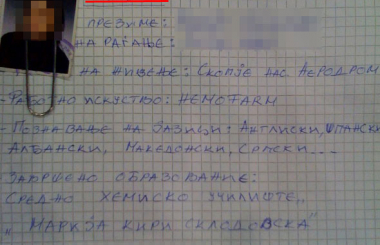 ПРЕЗИМЕ:
НА РАЃАЊЕ:
НА ЖИВЕЊЕ: СКОПЈЕ НАС АЕРОДРОМ
- РАБОТНО ИСКУСТВО: HEMOFARM
- ПОЗНАВАЊЕ НА ЈАЗИЦИ: АНГЛИСКИ, ШПАНСКИ
АЛБАНСКИ, МАКЕДОНСКИ, СРПСКИ...
ЗАВРШЕНО ОБРАЗОВАНИЕ:
СРЕДНО ХЕМИСКО УЧИЛИШТЕ,
„МАРИЈА КИРИ СКЛОДОВСКА"